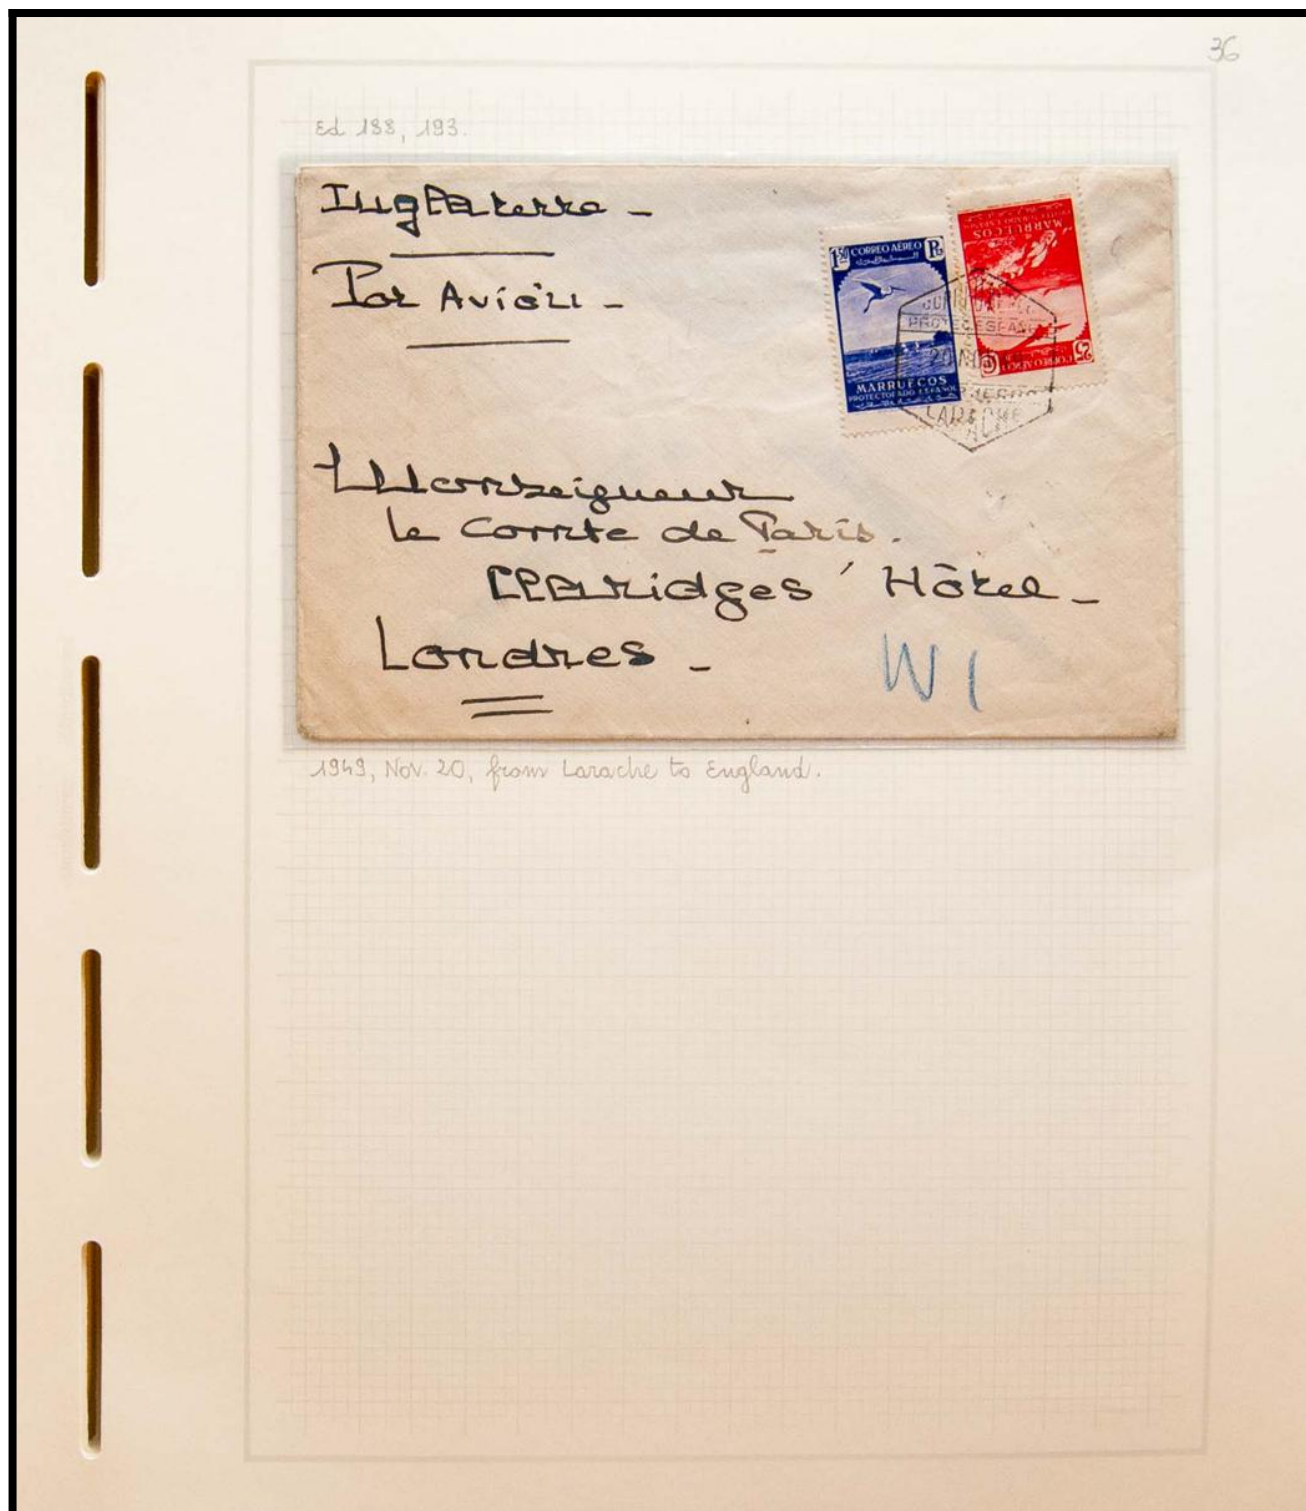 36
Ed 188, 193.
Inglaterra -
Por Avión -
1'50 CORREO AÉREO Pts
MARRUECOS
PROTECTORADO ESPAÑOL
MARRUECOS
PROTECTORADO ESPAÑOL
25 CORREO AÉREO
CORREO AEREO
PROTEC. ESPAÑOL
20 NOV
LARACHE
Monseigneur
le Comte de Paris.
Claridges' Hôtel -
Londres -
W1
1949, Nov. 20, from Larache to England.